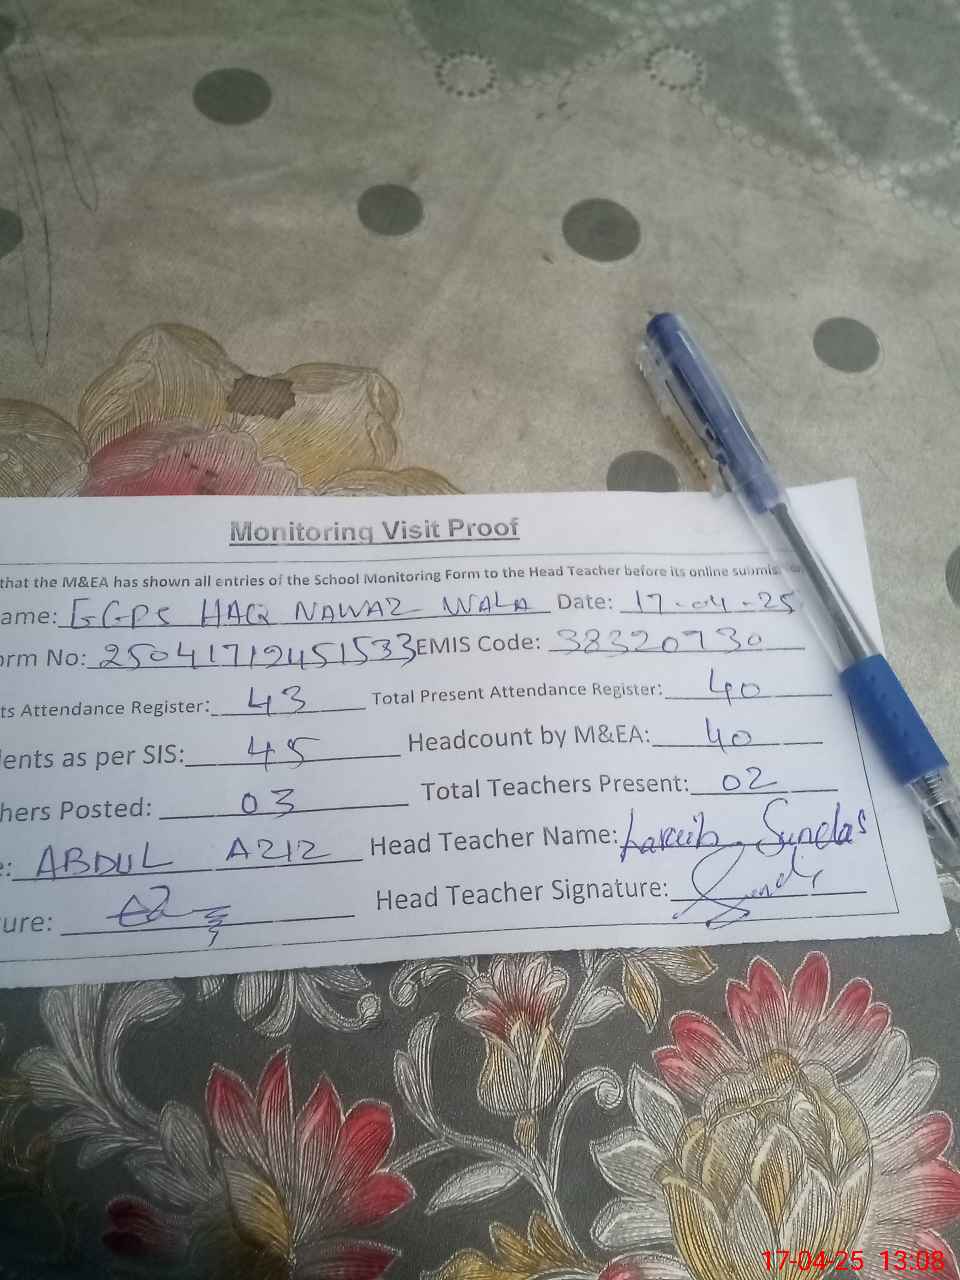 Monitoring Visit Proof
that the M&EA has shown all entries of the School Monitoring Form to the Head Teacher before its online submis
ame: GGPS HAQ NAWAZ WALA Date: 17-04-25
orm No: 250417124 51533 EMIS Code: 38320730
ts Attendance Register: 43 Total Present Attendance Register: 40
ents as per SIS: 45 Headcount by M&EA: 40
hers Posted: 03 Total Teachers Present: 02
e: ABDUL AZIZ Head Teacher Name: Sundas
ure: Head Teacher Signature:
17-04-25 13:08